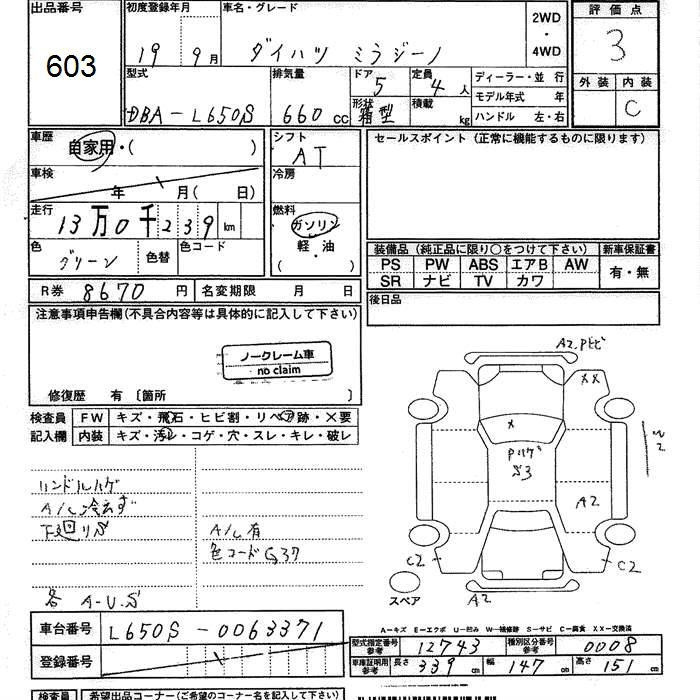 出品番号
603
初度登録年月
19 9月
車名・グレード
ダイハツ ミラジーノ
2WD
・
4WD
評価点
3
型式
DBA-L650S
排気量
660 cc
ドア
5
形状
箱型
定員
4人
積載
kg
ディーラー・並 行
モデル年式 年
ハンドル 左・右
外装
内装
C
車歴
自家用・( )
車検
年 月( 日)
走行
13万0千239km
色
グリーン
色替
色コード
シフト
AT
冷房
燃料
ガソリン
軽・油
( )
セールスポイント(正常に機能するものに限ります)
装備品(純正品に限り○をつけて下さい)
新車保証書
PS PW ABS エアB AW
SR ナビ TV カワ
有・無
後日品
R券 8670円
名変期限 月 日
注意事項申告欄(不具合内容等は具体的に記入して下さい)
ノークレーム車
no claim
修復歴 有〔箇所 〕
検査員
記入欄
FW キズ・飛石・ヒビ割・リペア跡・×要
内装 キズ・汚レ・コゲ・穴・スレ・キレ・破レ
ハンドルハゲ
A/C冷えず
下廻りS
各 A-U.S
A/C有
色コードG37
A2.Pトビ
XX
X
Pハゲ
S3
W2
A2
C2
C2
A2
スペア
A-キズ E-エクボ U-凹み W-補修跡 S-サビ C-腐食 XX-交換済
車台番号
L650S-0063371
登録番号
型式指定番号
参考
12743
種別区分番号
参考
0008
車庫証明用
参考
長さ 339cm
幅 147cm
高さ 151cm
検査員
希望出品コーナー(ご希望のコーナー名を記入して下さい)